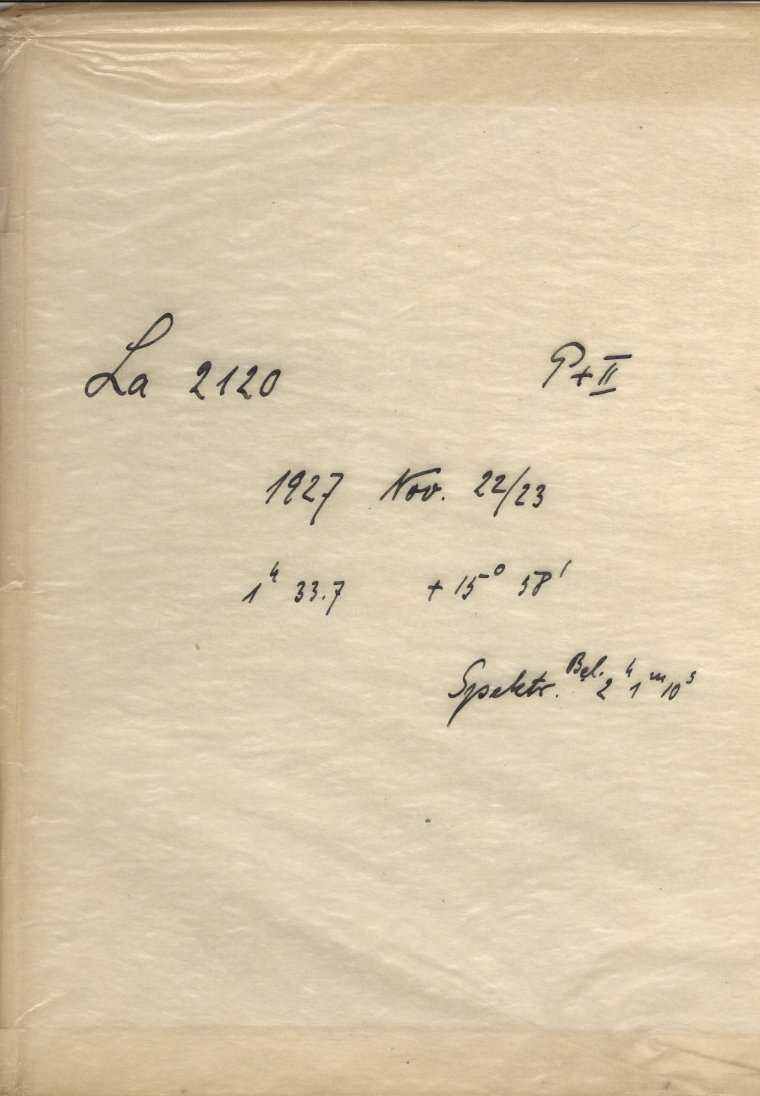 La 2120 P+II
1927 Nov. 22/23
1ʰ 33.7 +15° 58'
Spektr. Bel. 2ʰ 1ᵐ 10ˢ